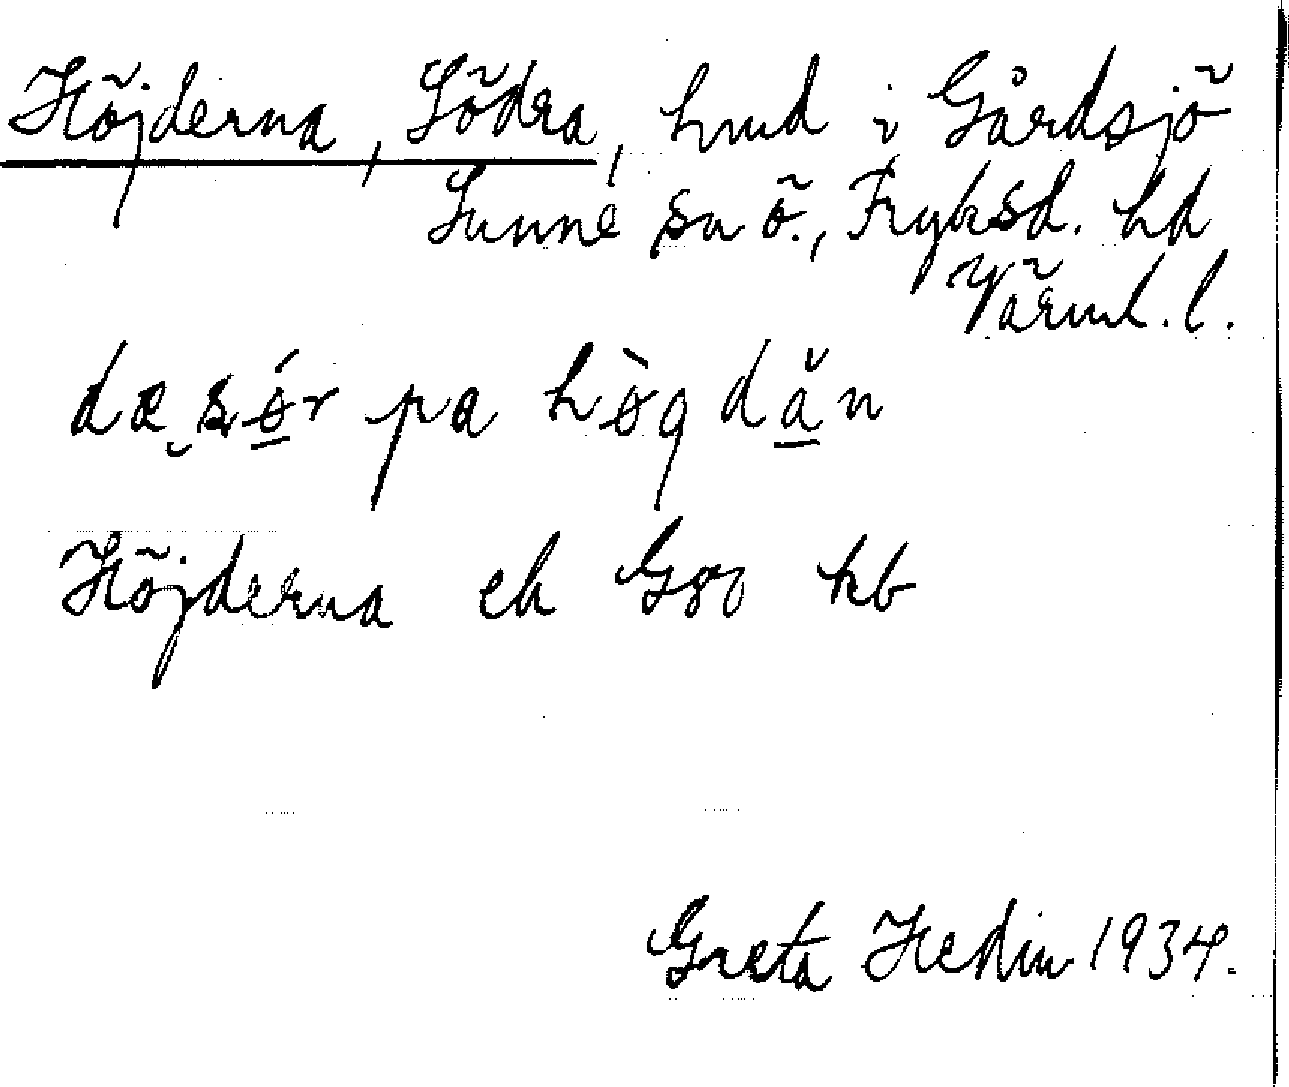 Höjderna, Södra, hmd i Gårdsjö
Sunne sn ö., Fryksd. hd
Värml. l.
dæ sør pa høgdăn
Höjderna ek G80 kb
Greta Hedin 1934.